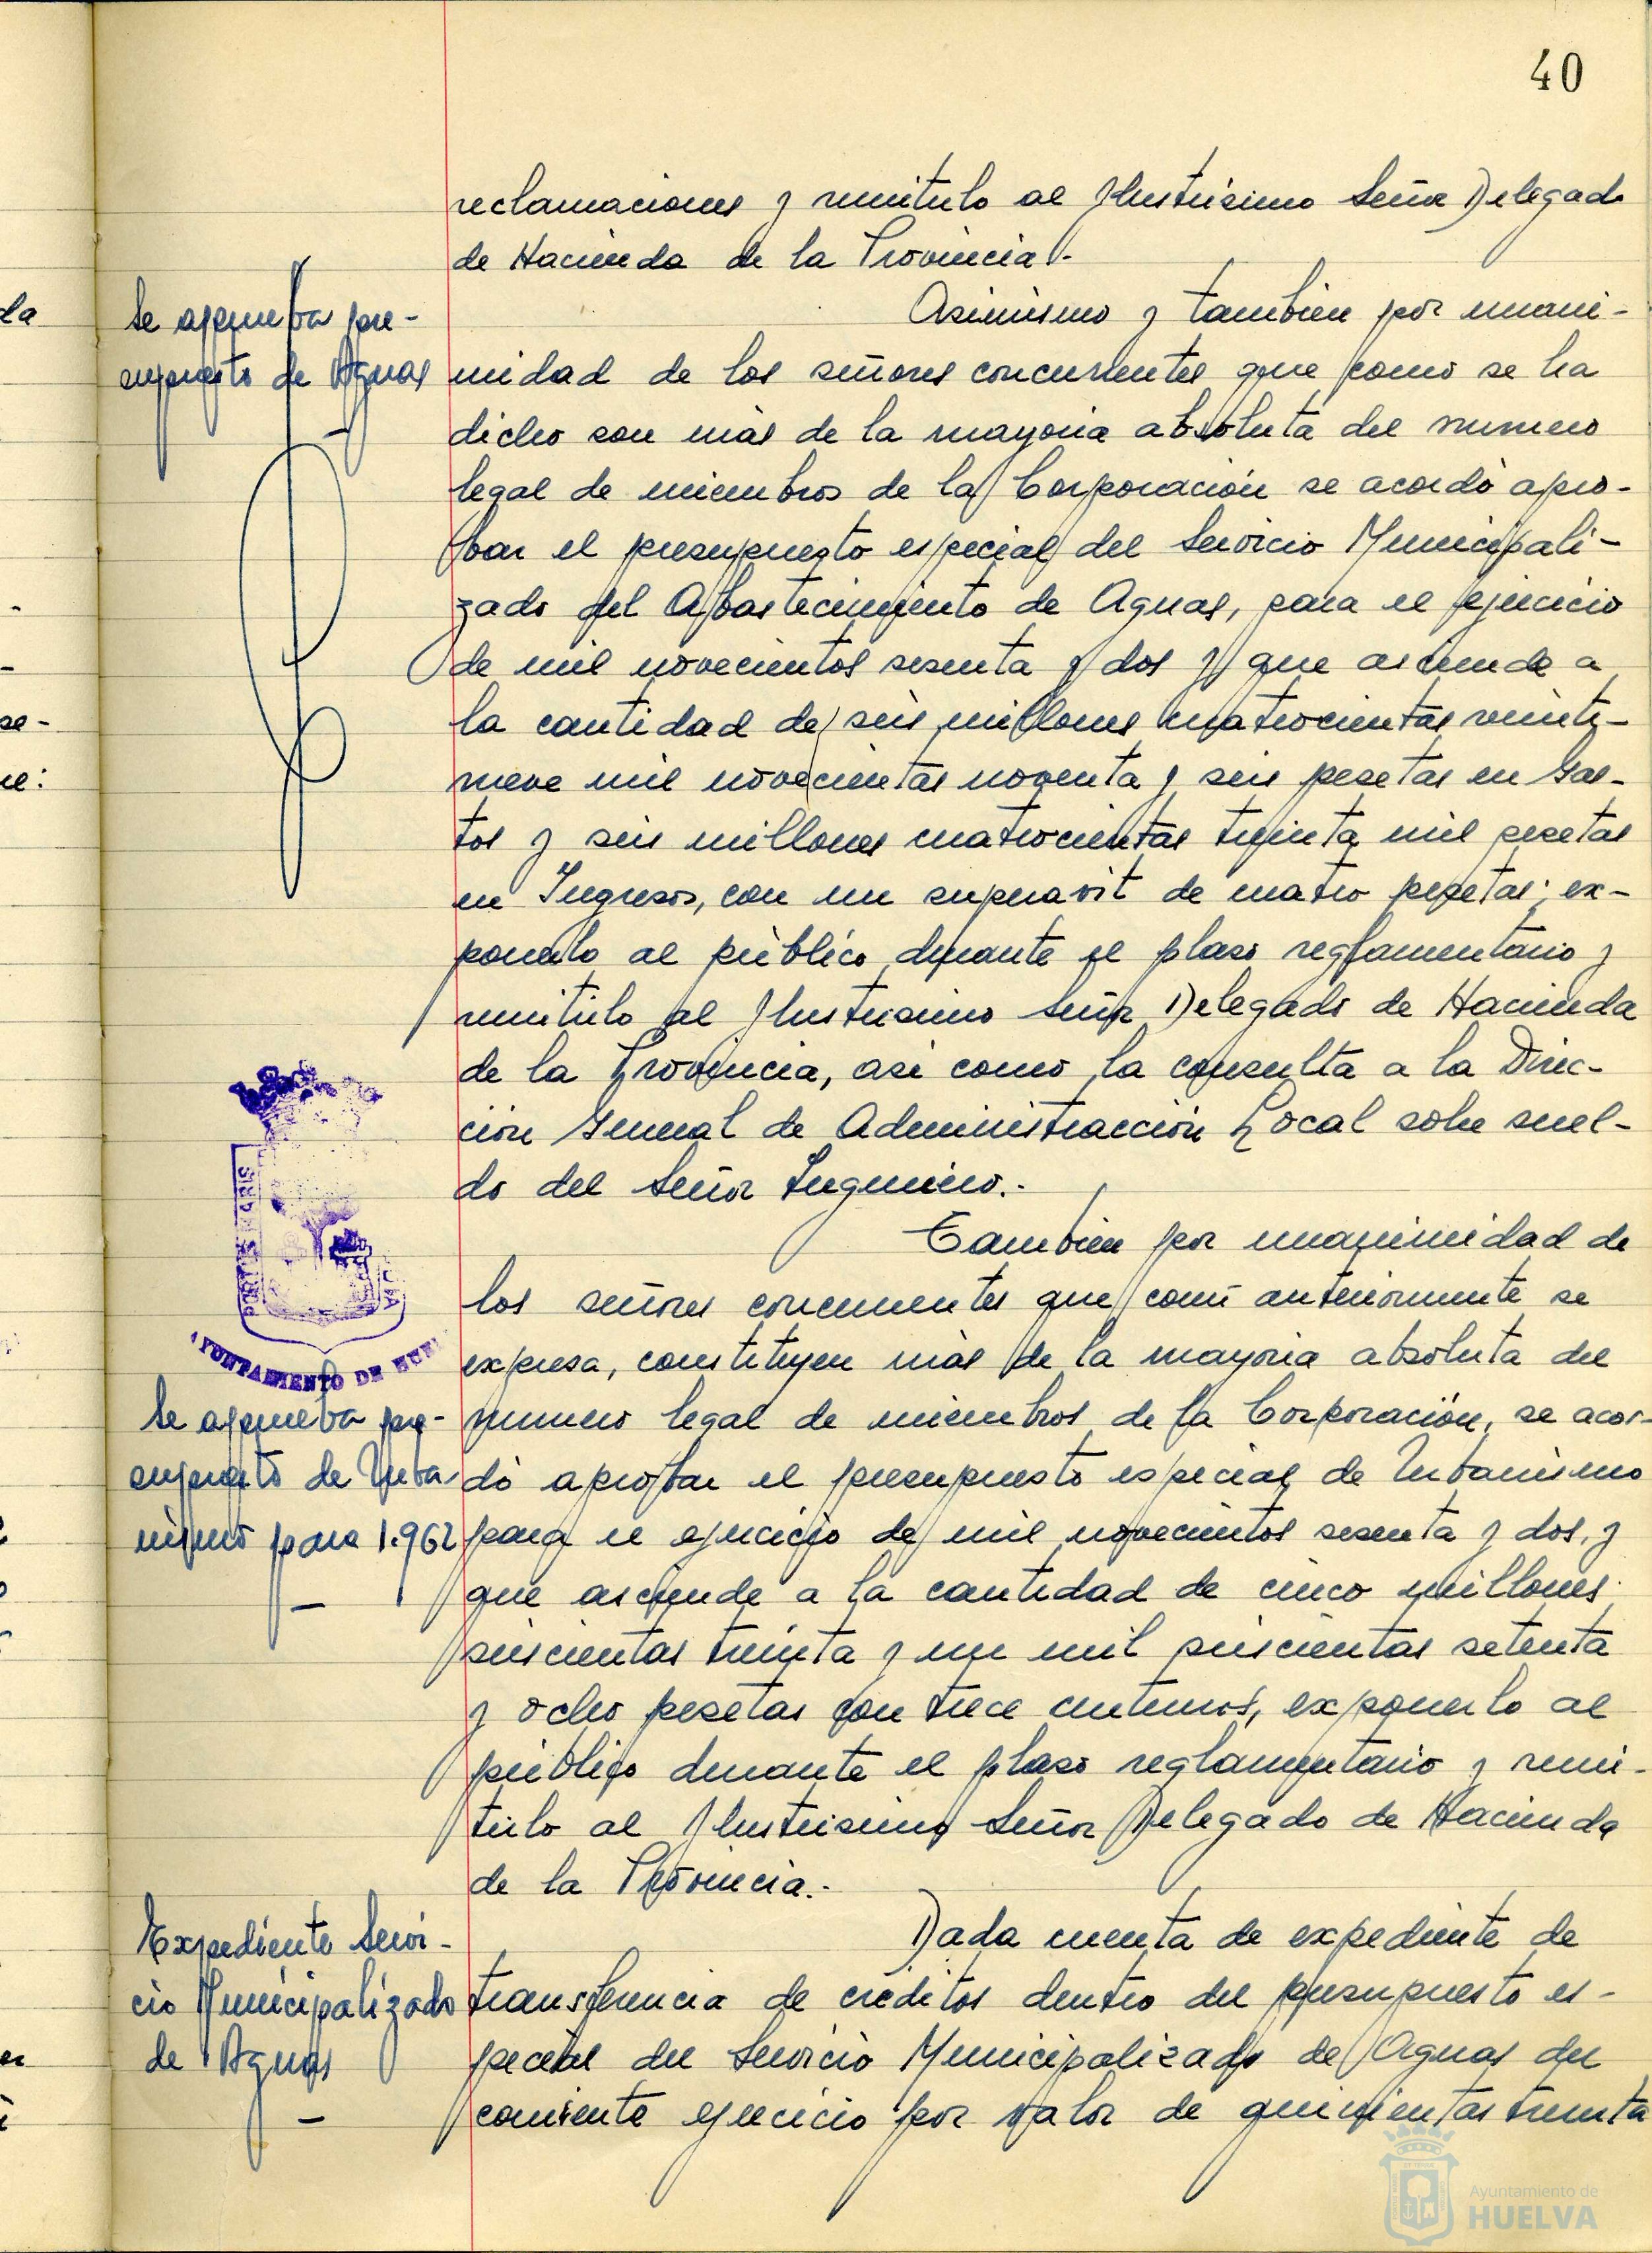 40
reclamaciones y remitirlo al Ilustrísimo Señor Delegado
de Hacienda de la Provincia.-
Asimismo y también por unani-
Se aprueba pre-
supuesto de Aguas
midad de los señores concurrentes que como se ha
dicho son más de la mayoria absoluta del numero
legal de miembros de la Corporación se acordó apro-
bar el presupuesto especial del Servicio Municipali-
zado del Abastecimiento de Aguas, para el ejercicio
de mil novecientos sesenta y dos y que asciende a
la cantidad de seis millones cuatrocientas veinti-
nueve mil novecientas noventa y seis pesetas en Gas-
tos y seis millones cuatrocientas treinta mil pesetas
en Ingresos, con un superavit de cuatro pesetas; ex-
ponerlo al público durante el plazo reglamentario y
remitirlo al Ilustrisimo Señor Delegado de Hacienda
de la Provincia, asi como la consulta a la Direc-
ción General de Administracción Local sobre suel-
do del Señor Ingeniero.-
También por unanimidad de
los señores concurrentes que como anteriormente se
expresa, constituyen más de la mayoria absoluta del
AYUNTAMIENTO DE HUEL
Se aprueba pre-
supuesto de Urba-
nismo para 1.962
numero legal de miembros de la Corporación, se acor-
dó aprobar el presupuesto especial de Urbanismo
para el ejercicio de mil novecientos sesenta y dos, y
que asciende a la cantidad de cinco millones
seiscientas treinta y un mil seiscientas setenta
y ocho pesetas con trece centimos, exponerlo al
público durante el plazo reglamentario y remi-
tirlo al Ilustrisimo Señor Delegado de Hacienda
de la Provincia.-
Expediente Servi-
cio Municipalizado
de Aguas
Dada cuenta de expediente de
transferencia de créditos dentro del presupuesto es-
pecial del Servicio Municipalizado de Aguas del
corriente ejercicio por valor de quinientas treinta
Ayuntamiento de
HUELVA